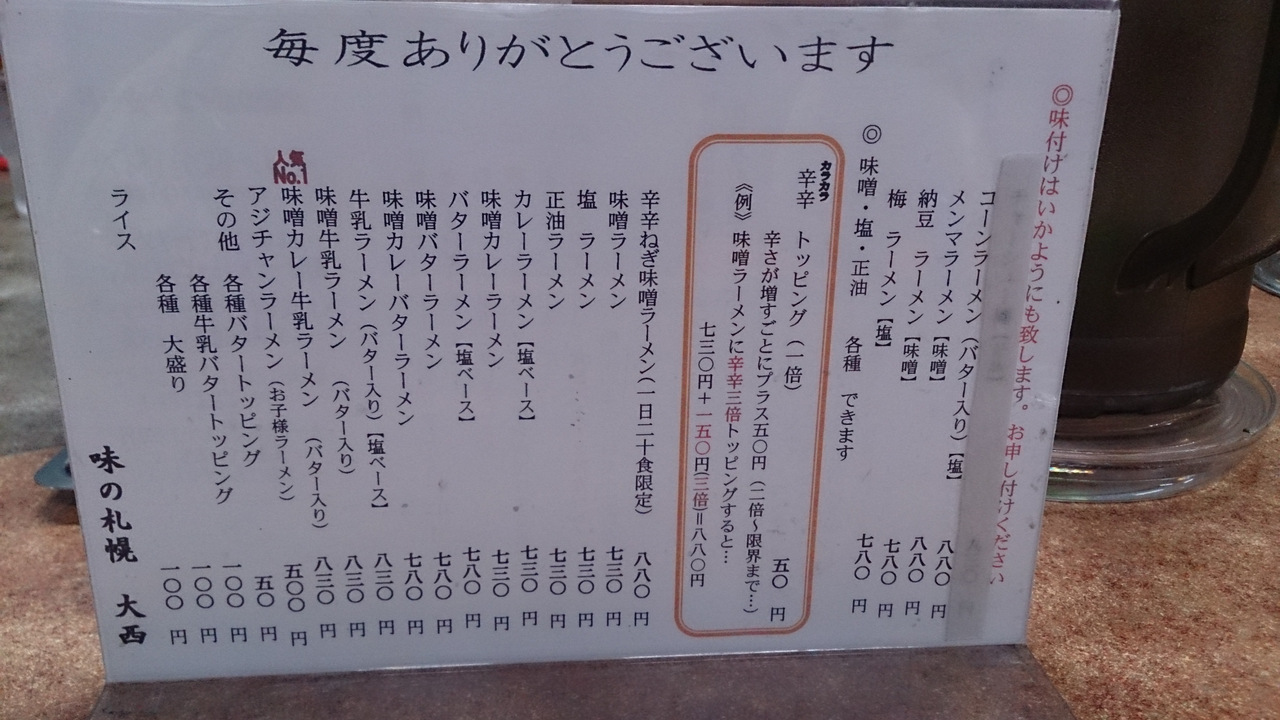 毎度ありがとうございます
◎味付けはいかようにも致します。お申し付けください
コーンラーメン（バター入り）【塩】 八八〇円
メンマラーメン【味噌】 八八〇円
納豆 ラーメン【味噌】 七八〇円
梅 ラーメン【塩】 七八〇円
◎味噌・塩・正油 各種 できます
カラカラ
辛辛 トッピング（一倍） 五〇円
辛さが増すごとにプラス五〇円（二倍～限界まで…）
《例》味噌ラーメンに辛辛三倍トッピングすると…
七三〇円＋一五〇円(三倍)＝八八〇円
辛辛ねぎ味噌ラーメン(一日二十食限定) 八八〇円
味噌ラーメン 七三〇円
塩 ラーメン 七三〇円
正油ラーメン 七三〇円
カレーラーメン【塩ベース】 七三〇円
味噌カレーラーメン 七三〇円
バターラーメン【塩ベース】 七八〇円
味噌バターラーメン 七八〇円
味噌カレーバターラーメン 七八〇円
牛乳ラーメン（バター入り）【塩ベース】 八三〇円
味噌牛乳ラーメン （バター入り） 八三〇円
人気No.1
味噌カレー牛乳ラーメン （バター入り） 八三〇円
アジチャンラーメン（お子様ラーメン） 五〇〇円
その他 各種バタートッピング 五〇円
各種牛乳バタートッピング 一〇〇円
各種 大盛り 一〇〇円
ライス 一〇〇円
味の札幌 大西